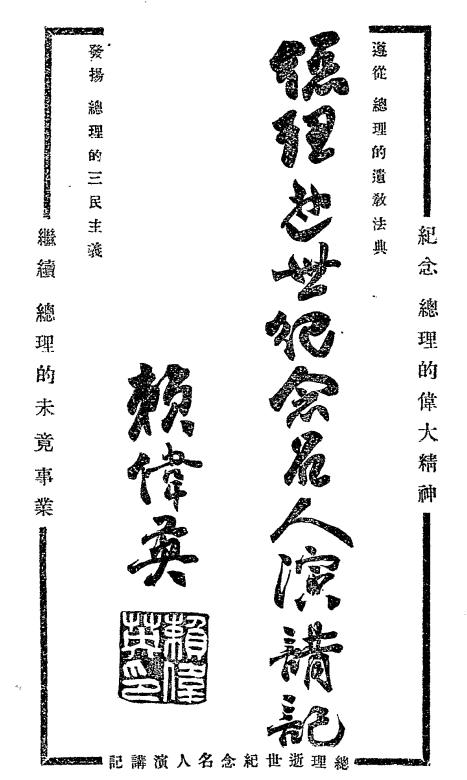 紀念 總理的偉大精神
遵從 總理的遺敎法典
總理逝世紀念名人演講記
賴偉英
賴偉英印
發揚 總理的三民主義
繼續 總理的未竟事業
總理逝世紀念名人演講記